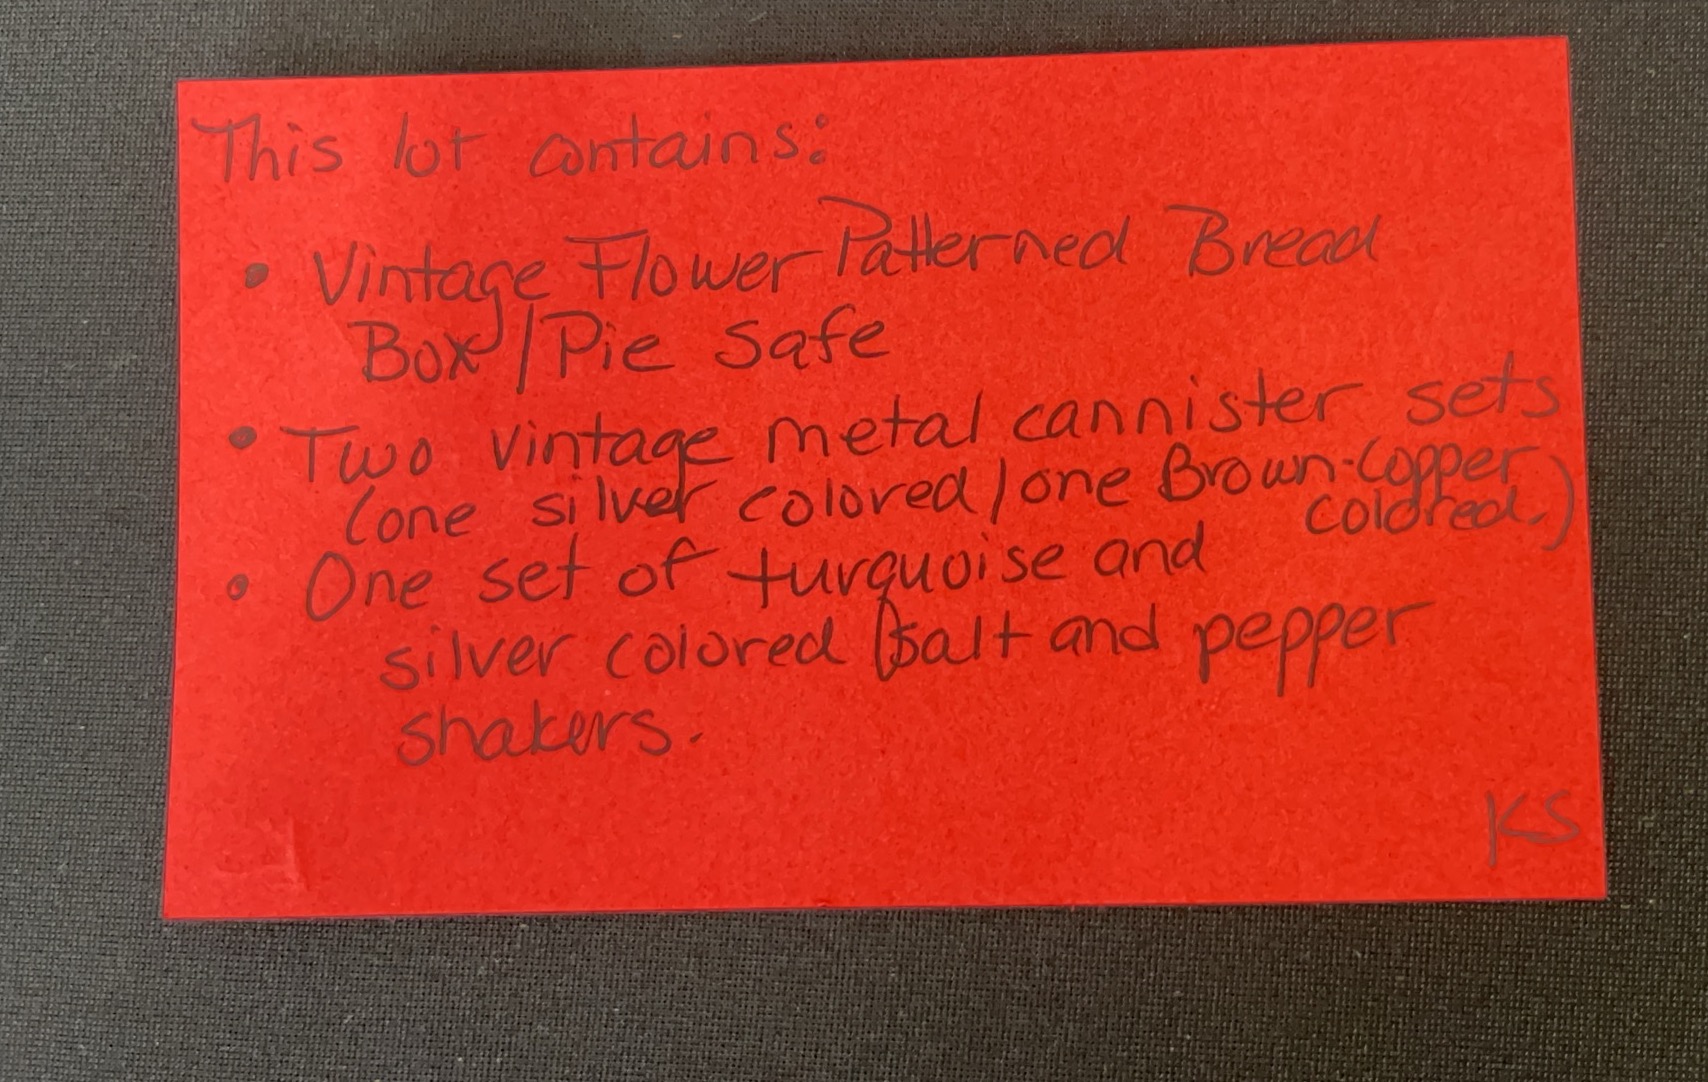 This lot contains:
• Vintage Flower Patterned Bread
Box/Pie Safe
• Two vintage metal cannister sets
(one silver colored/one Brown-Copper
colored.)
• One set of turquoise and
silver colored salt and pepper
shakers.
KS